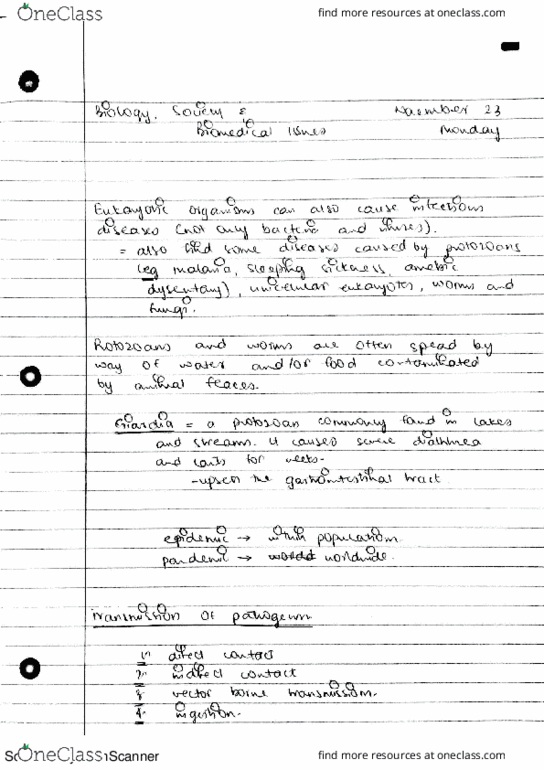 OneClass find more resources at oneclass.com
Biology, Society & November 23
Biomedical Issues Monday
Eukaryotic organisms can also cause infectious
diseases (not only bacteria and viruses).
= also find some diseases caused by protozoans
(eg malaria, sleeping sickness, amebic
dysentary), unicellular eukaryotes, worms and
fungi.
Protozoans and worms are often spead by
way of water and/or food contaminated
by animal feaces.
Giardia = a protozoan commonly found in lakes
and streams. it causes severe diarhhea
and lasts for weeks.
- upsets the gastrointestinal tract
epidemic → within population.
pandemic → worldwide.
Transmission of pathogens
1. direct contact
2. indirect contact
3. vector borne transmission.
4. ingestion.
OneClass Scanner find more resources at oneclass.com